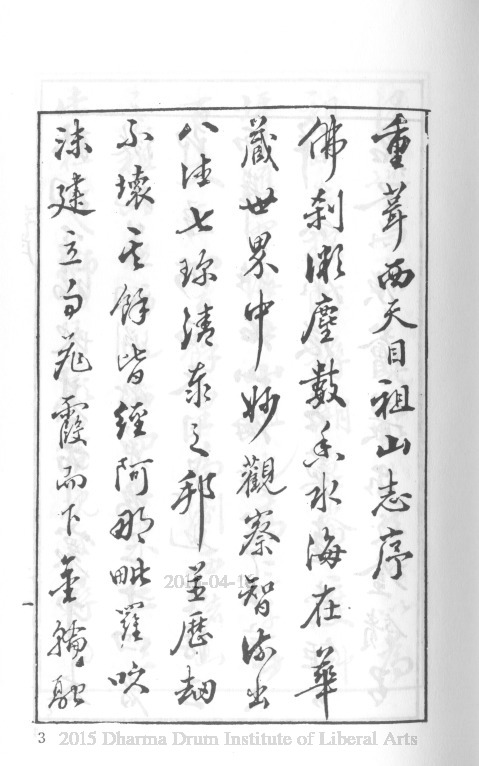 重葺西天目祖山志序
佛剎微塵數香水海在華
藏世界中妙觀察智流出
八法七珍清泰之邦並歷劫
不壞其餘皆經阿那毗羅吹
沫建立自飛霞而下金輪融
一
2015-04-15
3 2015 Dharma Drum Institute of Liberal Arts